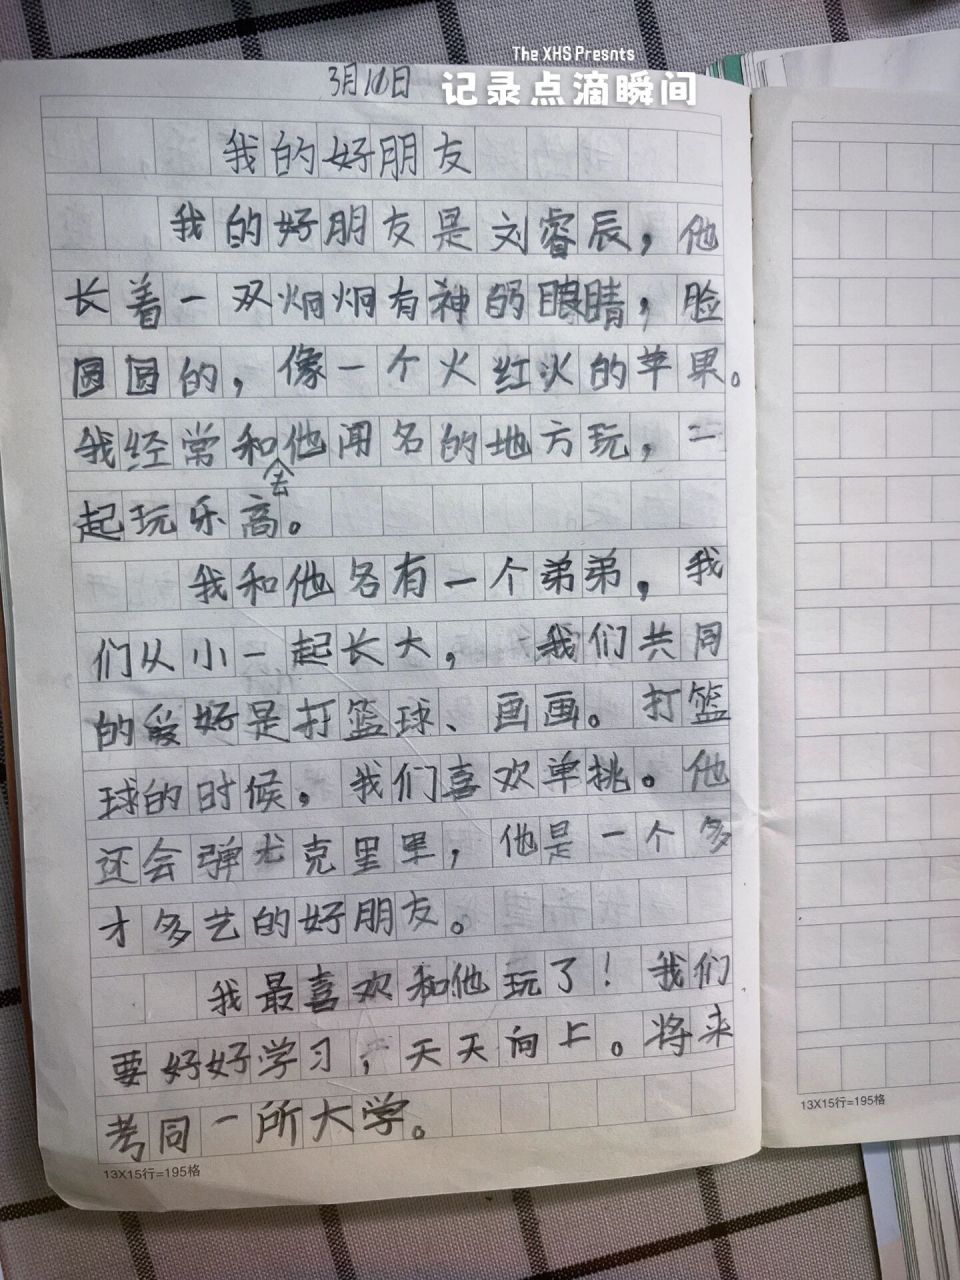 The XHS Presnts
记录点滴瞬间
3月16日
我的好朋友
我的好朋友是刘睿辰，他
长着一双炯炯有神的眼睛，脸
圆圆的，像一个火红火的苹果。
我经常和他去闻名的地方玩，一
起玩乐高。
我和他各有一个弟弟，我
们从小一起长大，我们共同
的爱好是打篮球、画画。打篮
球的时候，我们喜欢单挑。他
还会弹尤克里里，他是一个多
才多艺的好朋友。
我最喜欢和他玩了！我们
要好好学习，天天向上。将来
考同一所大学。
13X15行=195格
13X15行=195格